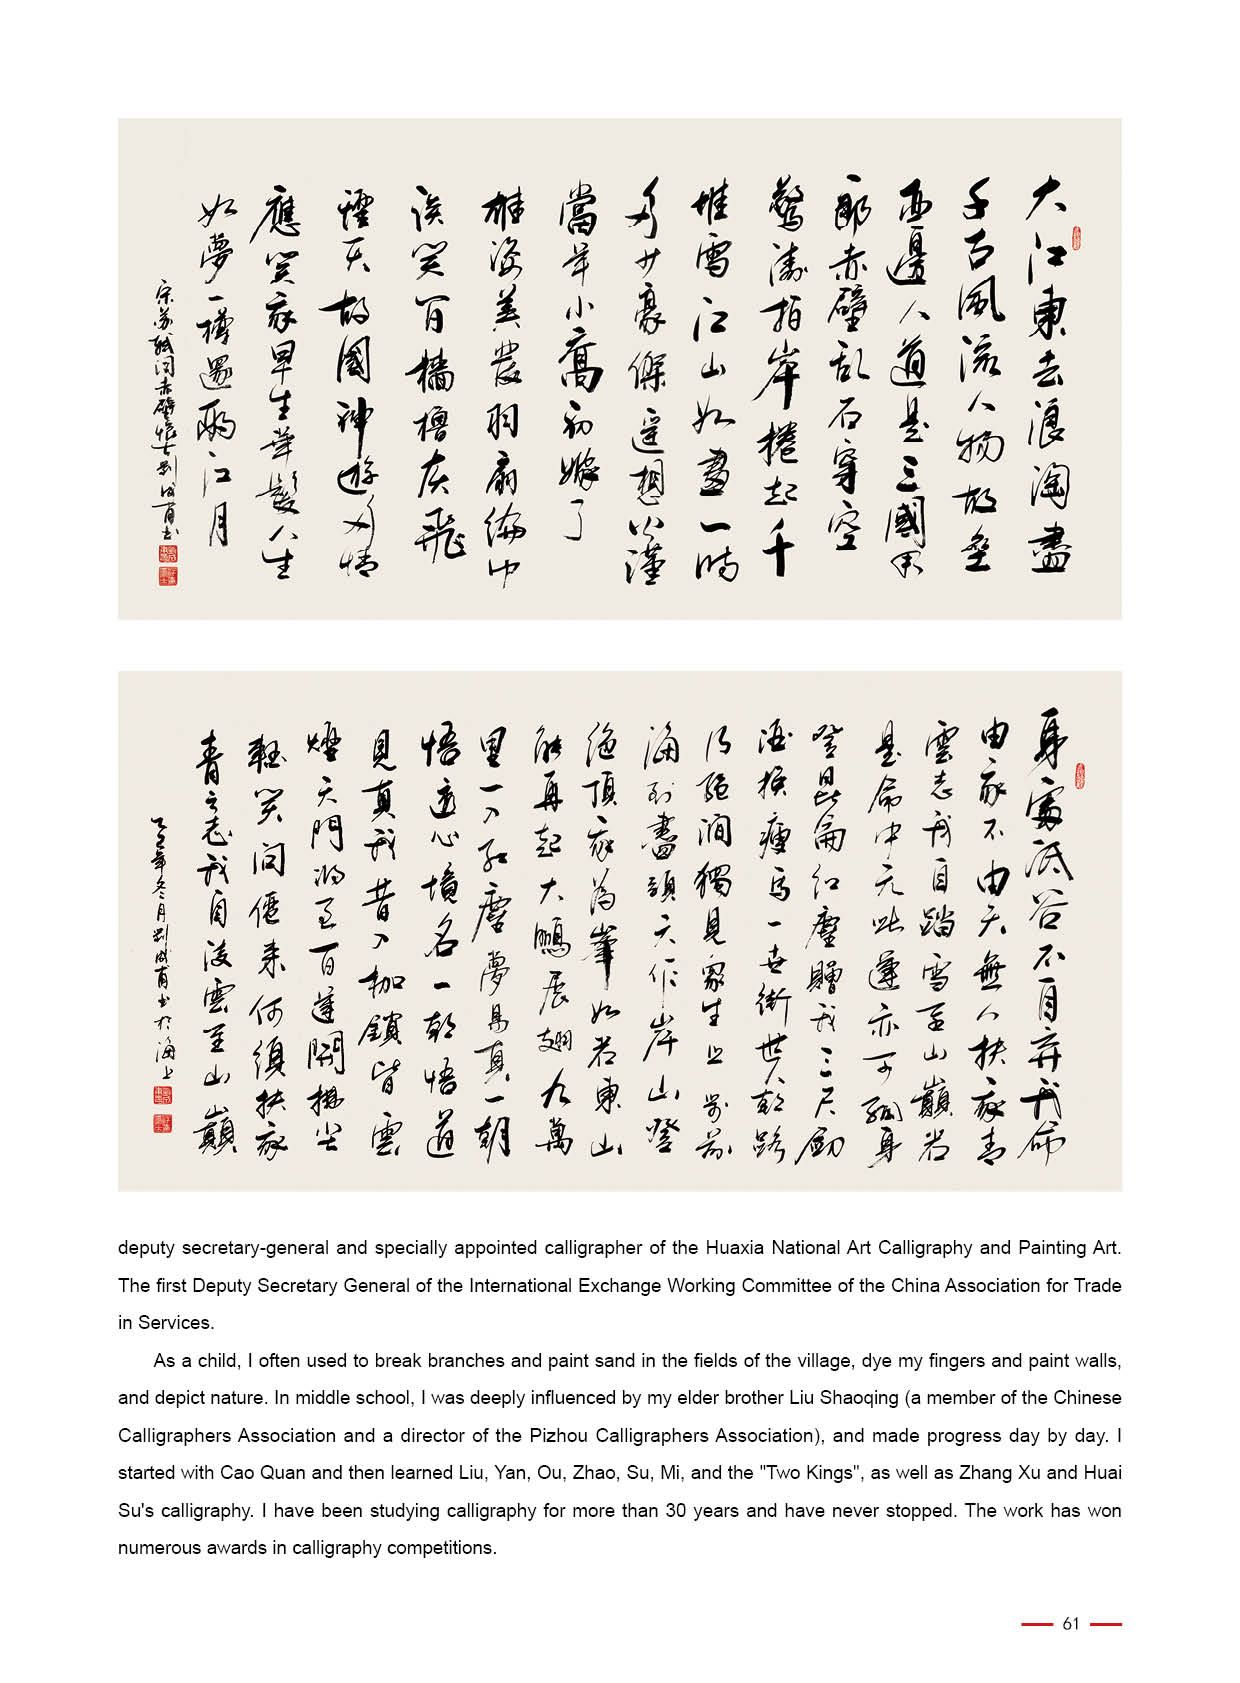 大江東去浪淘盡
千古風流人物故壘
西邊人道是三國周
郎赤壁乱石穿空
驚濤拍岸捲起千
堆雪江山如畫一時
多少豪傑遥想公瑾
當年小喬初嫁了
雄姿英發羽扇綸巾
談笑間檣櫓灰飛
煙灭故國神遊多情
應笑我早生華髮人生
如夢一樽還酹江月
宋蘇軾词赤壁懷古劉成甫書
身處低谷不自棄我命
由我不由天無人扶我青
雲志我自踏雪至山巔若
是命中无此運亦可孤身
登昆侖红塵贈我三尺劍
酒換瘦馬一世街世人朝路
絕澗獨見眾生止步前
海到盡頭天作岸山登
絕頂我為峯如若東山
能再起大鵬展翅九萬
里一入红塵夢易真一朝
悟透心境名一朝悟道
見真我昔日枷鎖皆雲
煙天門將至百運開
輕笑問僊來何須扶我
青雲志我自凌雲至山巔
年冬月劉成甫書於海上
deputy secretary-general and specially appointed calligrapher of the Huaxia National Art Calligraphy and Painting Art.
The first Deputy Secretary General of the International Exchange Working Committee of the China Association for Trade
in Services.
As a child, I often used to break branches and paint sand in the fields of the village, dye my fingers and paint walls,
and depict nature. In middle school, I was deeply influenced by my elder brother Liu Shaoqing (a member of the Chinese
Calligraphers Association and a director of the Pizhou Calligraphers Association), and made progress day by day. I
started with Cao Quan and then learned Liu, Yan, Ou, Zhao, Su, Mi, and the "Two Kings", as well as Zhang Xu and Huai
Su's calligraphy. I have been studying calligraphy for more than 30 years and have never stopped. The work has won
numerous awards in calligraphy competitions.
61